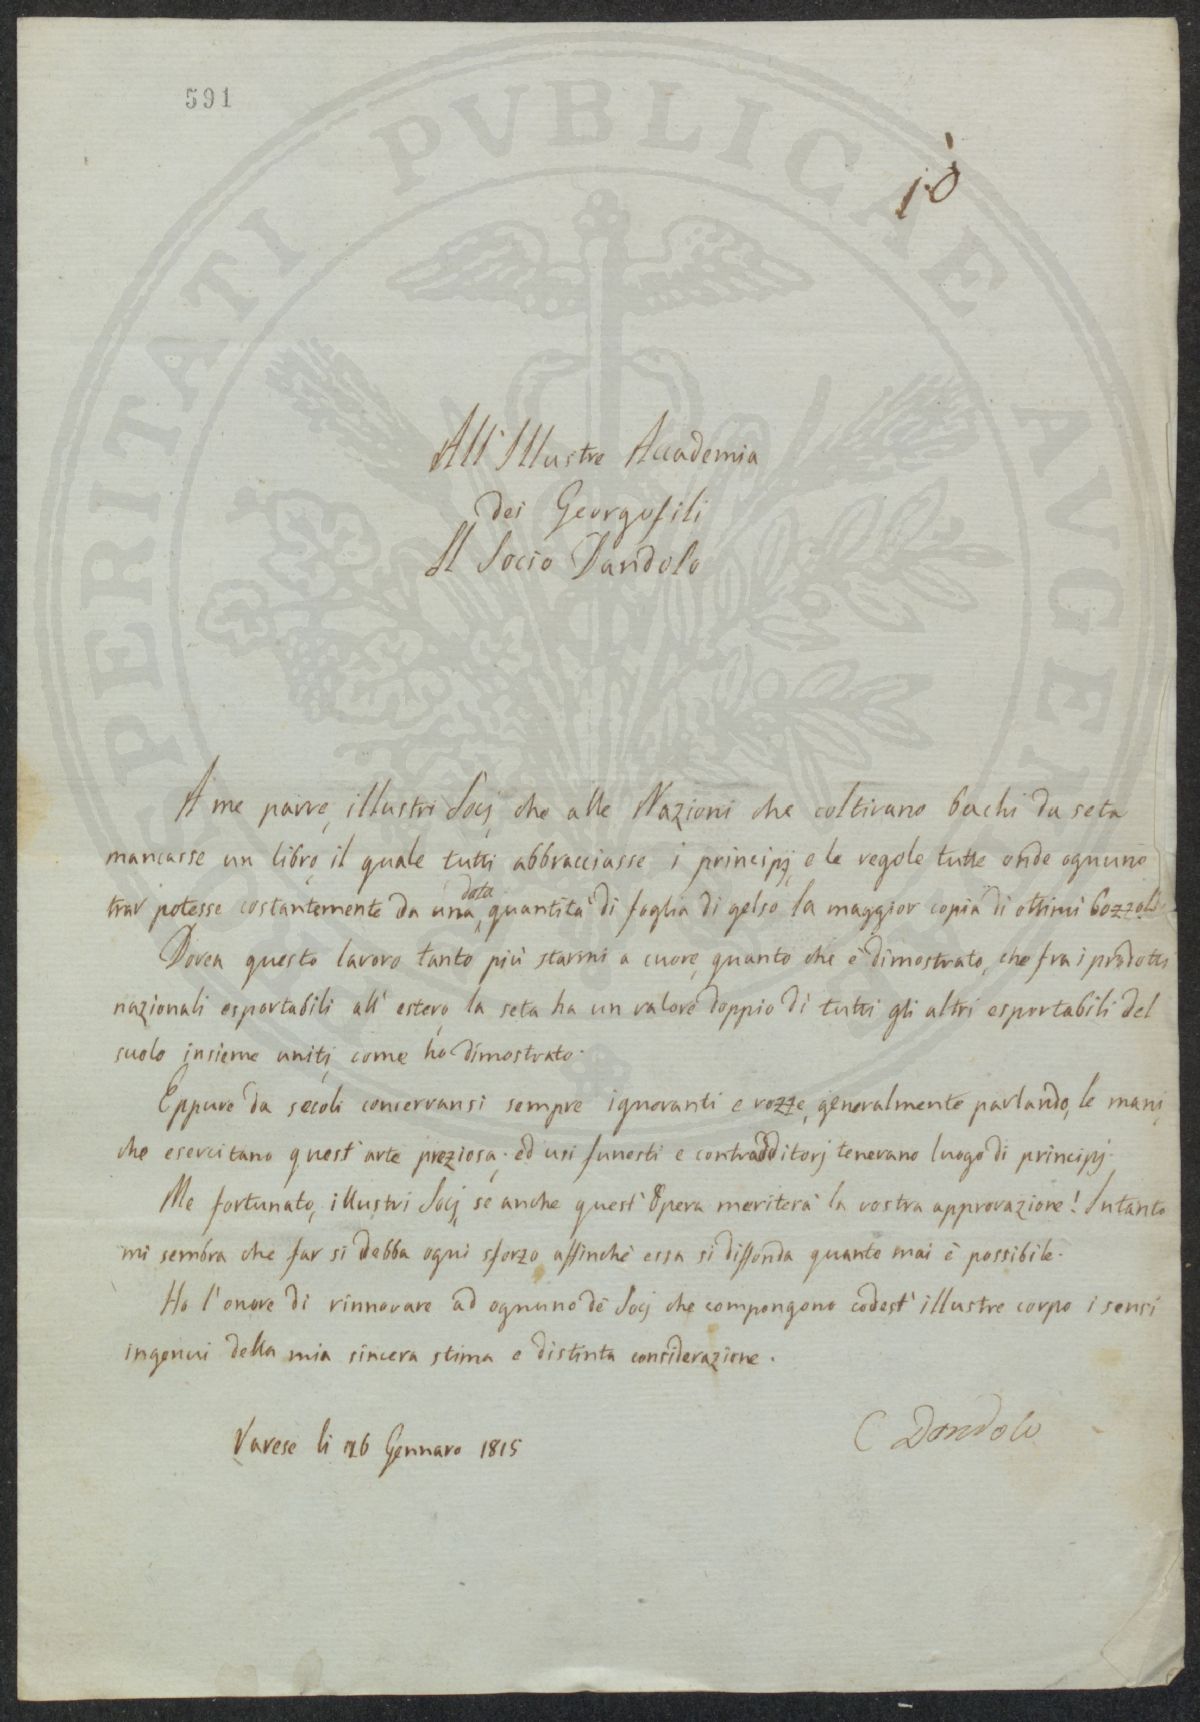 591
10
All'Illustre Accademia
dei Georgofili
Il Socio Dandolo
A me parve, illustri Socj, che alle Nazioni che coltivano bachi da seta
mancasse un libro, il quale tutti abbracciasse i principj, e le regole tutte onde ognuno
trar potesse costantemente da una data quantità di foglia di gelso la maggior copia di ottimi bozzoli.
Dovea questo lavoro tanto più starmi a cuore, quanto che è dimostrato, che fra i prodotti
nazionali esportabili all'estero, la seta ha un valore doppio di tutti gli altri esportabili del
suolo insieme uniti, come ho dimostrato.
Eppure da secoli conservansi sempre ignoranti e rozze, generalmente parlando, le mani,
che esercitano quest'arte preziosa; ed usi funesti e contradditorj tenevano luogo di principj.
Me fortunato, illustri Socj, se anche quest'Opera meriterà la vostra approvazione! Intanto
mi sembra che far si debba ogni sforzo affinchè essa si diffonda quanto mai è possibile.
Ho l'onore di rinnovare ad ognuno dè Socj che compongono codest'illustre corpo i sensi
ingenui della mia sincera stima e distinta considerazione.
Varese li 26 Gennaro 1815
C Dandolo
PERITATI PVBLICAE AVGEN